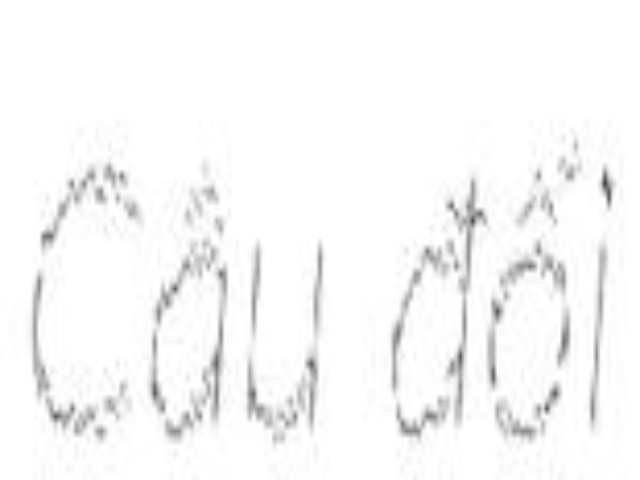 Câu đối